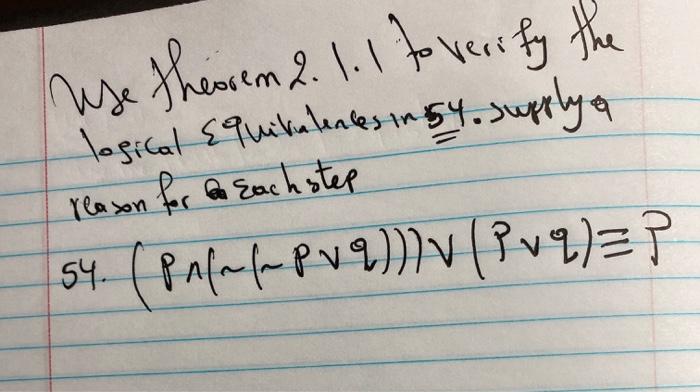 Use Theorem 2.1.1 to verify the
logical Equivalences in 54. supply a
reason for Each step
54. (P∧(~(~P∨q)))∨(P∨q)≡P